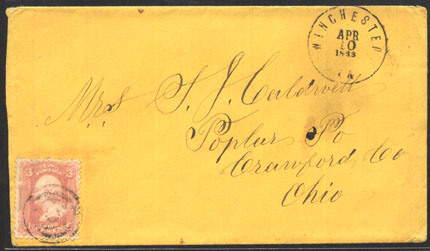 WINCHESTER
APR
10
1863
VA
Mrs S. J. Caldwell
Poplar Po
Crawford Co
Ohio
3 3